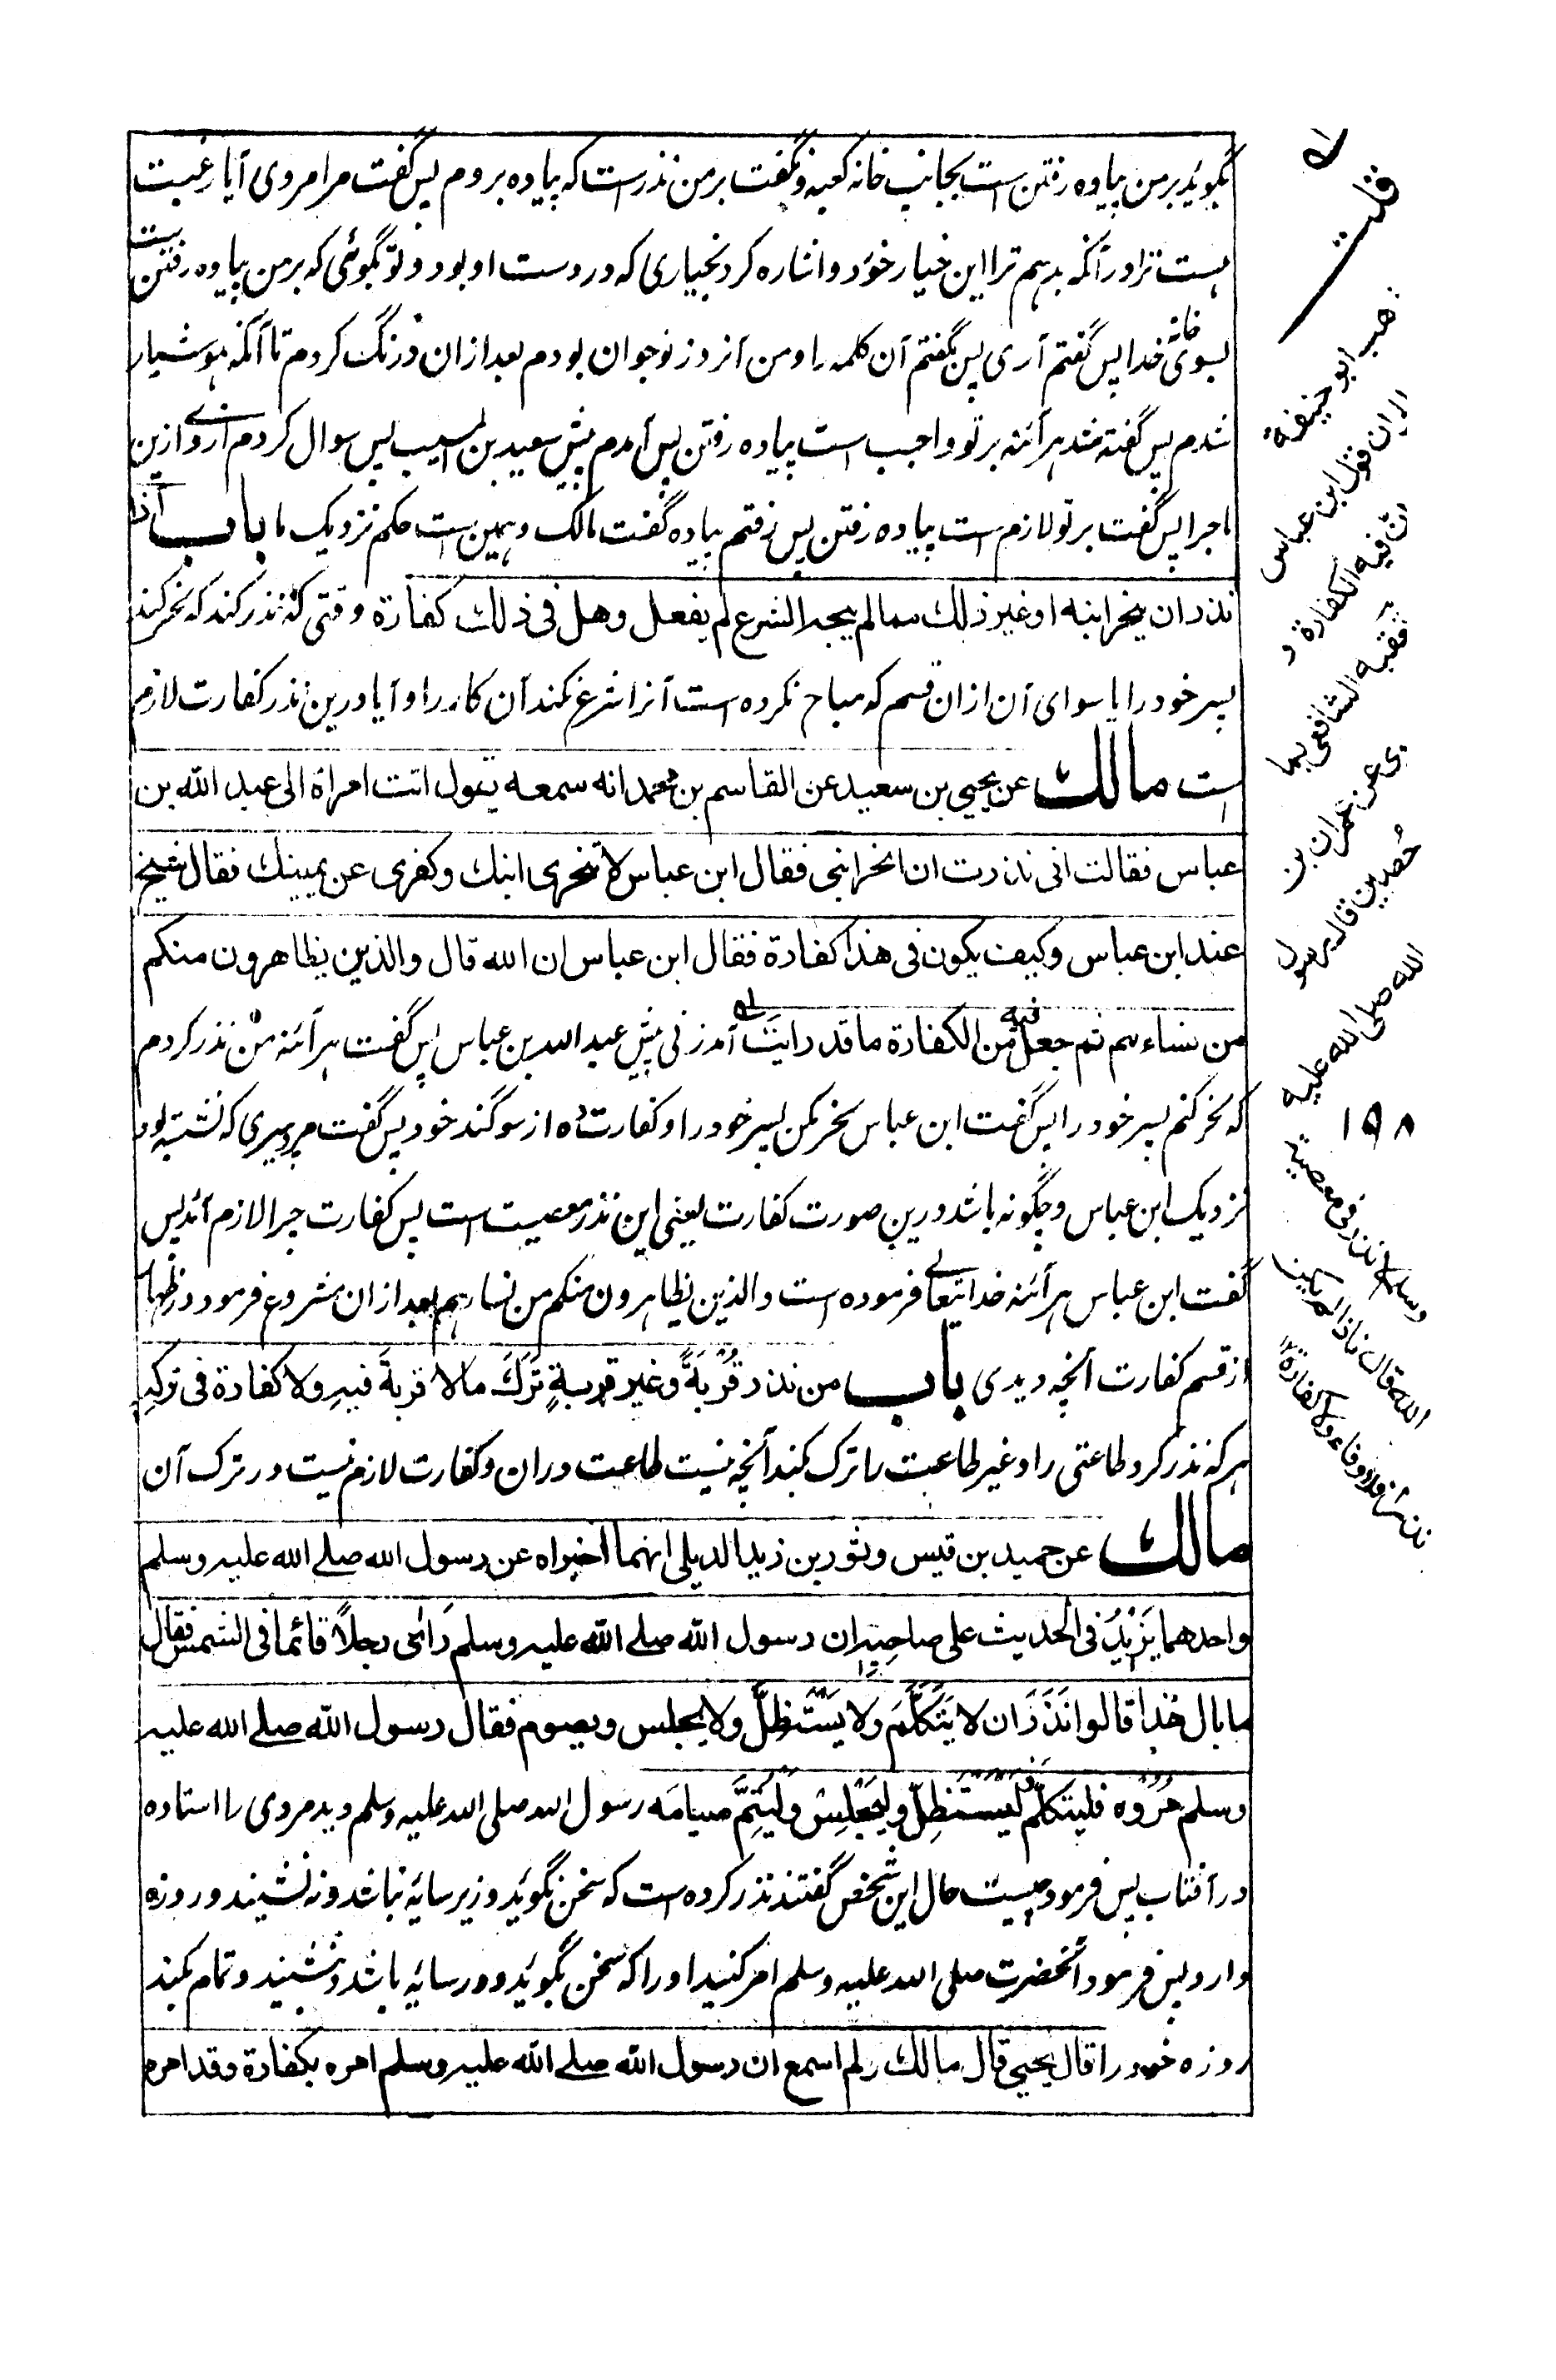 بگوید بر من پیاده رفتن است بجانب خانه کعبه و نگفت بر من نذر است که پیاده بروم پس گفت مرا مردی آیا رغبت
هست ترا در آنکه بدهم ترا این خیار خورد و اشاره کرد بخیاری که در دست او بود و تو بگوئی که بر من پیاده رفتن است
بسوی خانه خدا پس گفتم آری پس بگفتم آن کلمه را و من آنروز نوجوان بودم بعد ازان درنگ کردم تا آنکه هوشیار
شدم پس گفته شد هر آئنه بر تو واجب است پیاده رفتن پس آمدم پیش سعید بن المسیب پس سوال کردم از وی ازین
ماجرا پس گفت بر تو لازم است پیاده رفتن پس رفتم پیاده گفت مالک و همین است حکم نزدیک ما باب اذا
نذر ان ینحر ابنه او غیر ذلك مما لم یبحه الشرع لم یفعل وهل فی ذلك کفارة وقتی که نذر کند که نحر کند
پسر خود را یا سوای آن ازان قسم که مباح نکرده است آنرا شرع نکند آن کار را و آیا درین نذر کفارت لازم
است مالك عن یحیی بن سعید عن القاسم بن محمد انه سمعه یقول اتت امرأة الی عبد الله بن
عباس فقالت انی نذرت ان انحر ابنی فقال ابن عباس لا تنحری ابنك وکفری عن یمینك فقال شیخ
عند ابن عباس وکیف یکون فی هذا کفارة فقال ابن عباس ان الله قال والذین یظاهرون منکم
من نساءهم ثم جعل فیه من الکفارة ما قد رایت آمد زنی پیش عبد الله بن عباس پس گفت هر آئنه من نذر کردم
که نحر کنم پسر خود را پس گفت ابن عباس نحر مکن پسر خود را و کفارت ده از سوگند خود پس گفت مرد پیری که نشسته بود
نزدیک ابن عباس و چگونه باشد درین صورت کفارت یعنی این نذر معصیت است پس کفارت چرا لازم آید پس
گفت ابن عباس هر آئنه خدایتعالی فرموده است والذین یظاهرون منکم من نساءهم بعد ازان مشروع فرمود در ظهار
از قسم کفارت آنچه دیدی باب من نذر قُرْبَةً وغیر قربةٍ تَرَكَ مالا قربةَ فیه ولا کفارة فی ترکه
هر که نذر کرد طاعتی را و غیر طاعت را ترک کند آنچه نیست طاعت دران و کفارت لازم نیست در ترک آن
مالك عن حمید بن قیس وثور بن زید الدیلی انهما اخبراه عن رسول الله صلے الله علیه وسلم
واحدهما یَزِیْدُ فی الحدیث علی صاحبه ان رسول الله صلے الله علیه وسلم رَاٰی رجلاً قائما فی الشمس فقال
ما بال هذا قالوا نَذَرَ ان لا یَتَکَلَّمَ ولا یَسْتَظِلَّ ولا یجلس ویصوم فقال رسول الله صلے الله علیه
وسلم مُرُوْه فلیتکلّم ولیستظِلّ ولیَجْلِسْ ولْیُتِمَّ صیامَه رسول الله صلی الله علیه وسلم دید مردی را استاده
در آفتاب پس فرمود چیست حال این شخص گفتند نذر کرده است که سخن نگوید و زیر سایه نباشد و نه نشیند و روزه
دارد پس فرمود آنحضرت صلی الله علیه وسلم امر کنید او را که سخن بگوید و در سایه باشد و بنشیند و تمام بکند
روزه خود را قال یحیی قال مالك ولم اسمع ان رسول الله صلے الله علیه وسلم امره بکفارة وقد امره
قلت
ذهب ابو حنیفة
الی ان قول ابن عباس
ان فیه الکفارة و
تعقبه الشافعی بما
روی عن عمران بن
حصین قال رسول
الله صلی الله علیه
۱۹۸
وسلم لا نذر فی معصیة
الله قال فاذا لم یکن